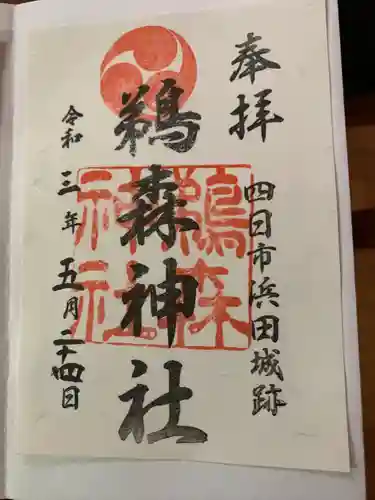 奉拝
四日市浜田城跡
鵜森神社
鵜森
神社
令和三年五月二十四日